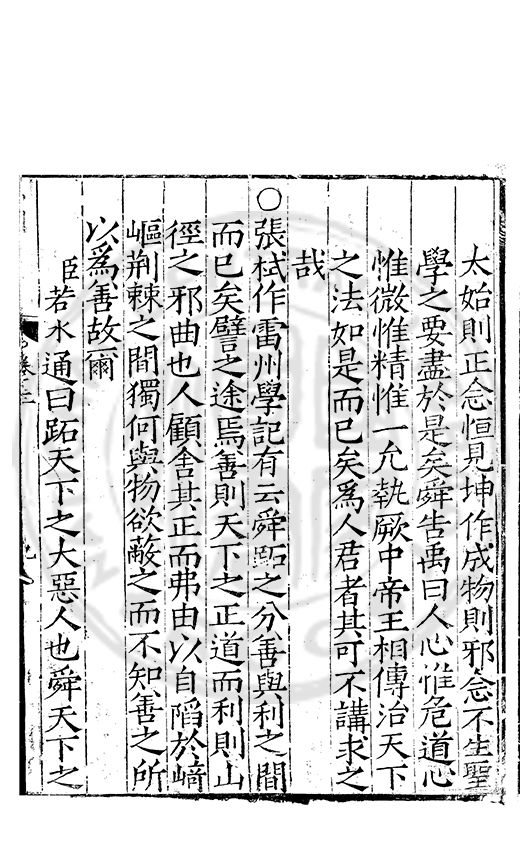 太始則正念恒見坤作成物則邪念不生聖
學之要盡於是矣舜告禹曰人心惟危道心
惟微惟精惟一允執厥中帝王相傳治天下
之法如是而已矣爲人君者其可不講求之
哉
○張栻作雷州學記有云舜跖之分善與利之間
而已矣譬之途焉善則天下之正道而利則山
徑之邪曲也人顧舍其正而弗由以自陷於崎
嶇荆棘之間獨何與物欲蔽之而不知善之所
以爲善故爾
臣若水通曰跖天下之大惡人也舜天下之